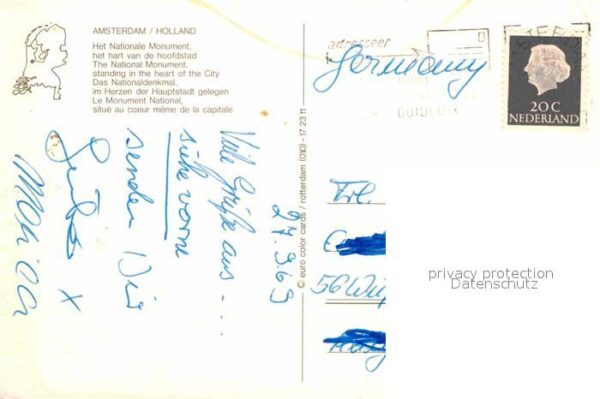 AMSTERDAM / HOLLAND
Het Nationale Monument,
het hart van de hoofdstad
The National Monument,
standing in the heart of the City
Das Nationaldenkmal,
im Herzen der Hauptstadt gelegen
Le Monument National,
situé au coeur même de la capitale
27.9.69
Viele Grüße aus - . . .
siehe vorne
senden Dir
x
Monica
© euro color cards / rotterdam (010) - 17 23 11
adresseer
Germany
20 C
NEDERLAND
Frl.
56
privacy protection
Datenschutz